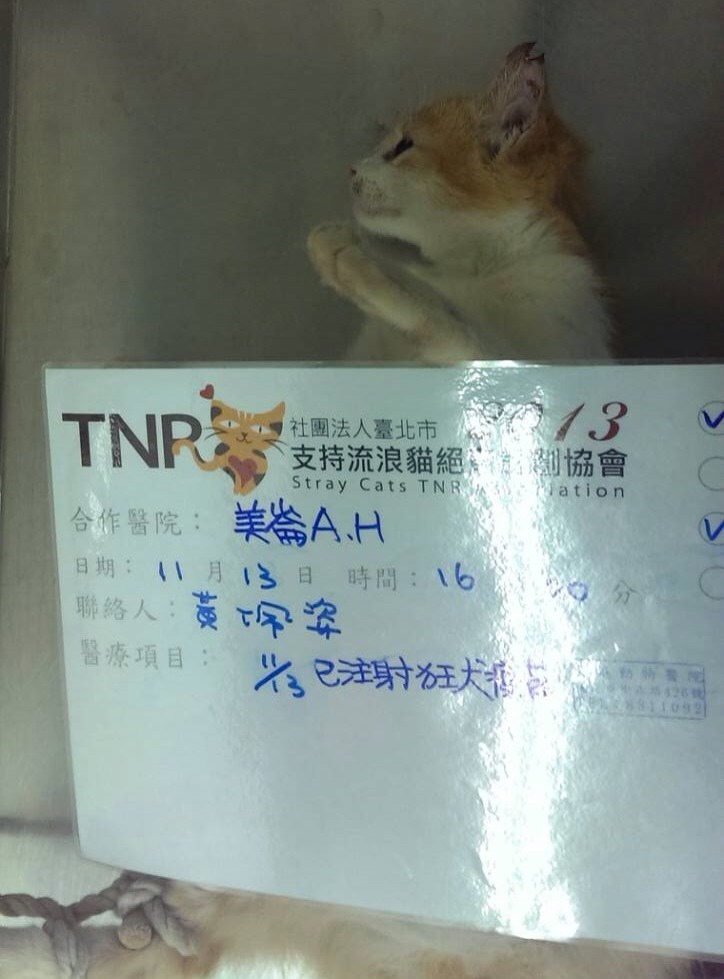 TNR
社團法人臺北市
13
支持流浪貓絕 協會
Stray Cats TNR
合作醫院： 美崙A.H
日期： 11 月 13 日 時間： 16 分
聯絡人： 黃珮姿
醫療項目：
11/13 已注射狂犬疫苗
動物醫院
426號
8311092